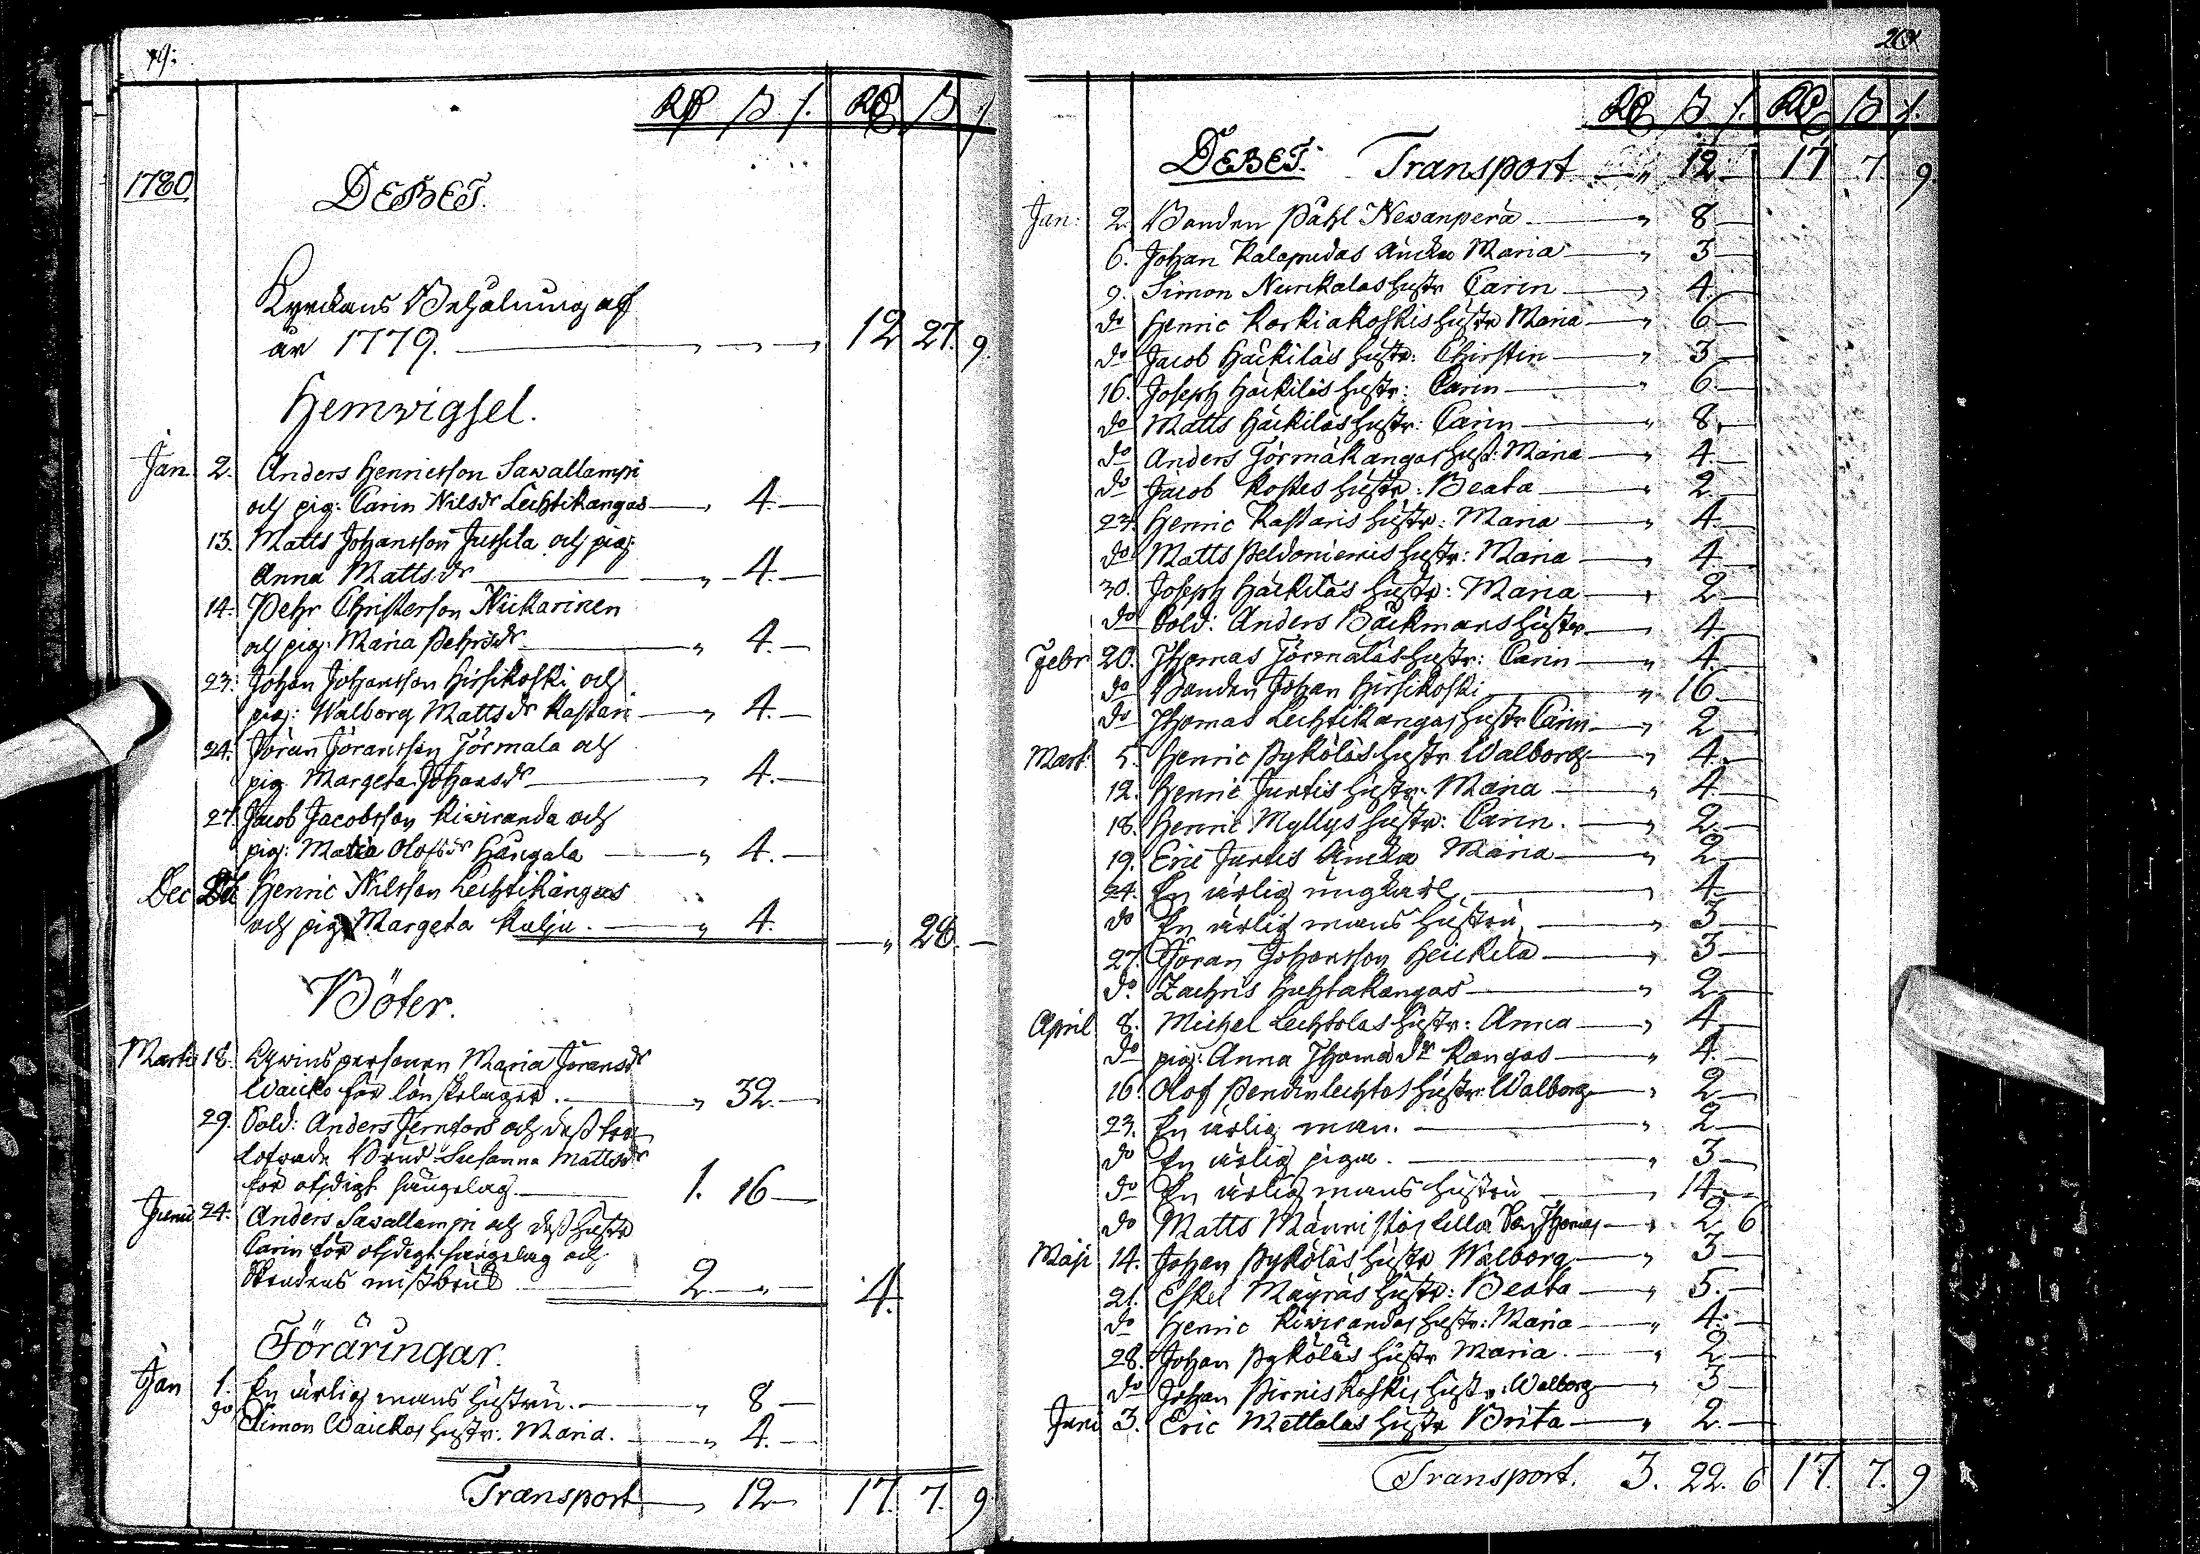 19.
Rd ß r. Rd ß r
1780
DEBET.
Kyrckans Behålning af
år 1779. — " — " — " 12 27. 9.
Hemwigsel.
Jan. 2. Anders Henricsson Sawallampi
och pig: Carin Nilsdr Lechtikangas — " 4. —
13. Matts Johansson Jussila och pig:
Anna Mattsdr — " 4. —
14. Pehr Christersson Niikarinen
och pig: Maria Pehrsdr — " 4. —
23. Johan Johansson Hirsikoski och
pig: Walborg Mattsdr Kastari — " 4. —
24. Jöran Jöransson Jörmala och
pig Margeta Johansdr — " 4. —
27. Jacob Jacobsson Kiwiranda och
pig: Maria Olofsdr Hängala — " 4. —
Dec Henric Nilsson Lechtikangas
och pig Margeta Kulju. — " 4. — " 28. —
Böter.
Marti 18. Qwinspersonen Maria Jöransdr
Waicko för lönskelager. — " 32. —
29. Sold: Anders Jernfors och dess tro-
lofwade Brud Susanna Mattsdr
för otidigt sängelag. — 1. 16 —
Junii 24. Anders Sawallampi och dess hustr
Carin för otidigt sängelag och
missbruk — 2. " — 4.
Föräringar.
Jan 1. En ärlig mans hustru. — " 8 —
do Simon Waickos hustr: Maria. — " 4. —
Transport — " 12 — 17. 7. 9.
20
Rd ß r. Rd ß r.
DEBET. Transport — " 12 — 17 7 9.
Jan: 2. Bonden Påhl Newanperä — " 8 —
6. Johan Kalapudas Änka Maria — " 3 —
9. Simon Nurkalas hustr Carin — " 4. —
do Henric Korkiakoskis hustr Maria — " 6 —
do Jacob Häckiläs hustr: Chirstin — " 3 —
16. Joseph Häckiläs hustr: Carin — " 6 —
do Matts Häckiläs hustr: Carin — " 8. —
do Anders Törmäkangas hust: Maria — " 4. —
do Jacob Kostes hustr: Beata — " 2. —
23. Henric Kastaris hustr: Maria — " 4. —
do Matts Peldoniemis hustr: Maria — " 4 —
30. Joseph Häckiläs hustr: Maria — " 2 —
do Sold: Anders Bäckmans hustr — " 4. —
Febr 20. Thomas Jörmalas hustr: Carin — " 4. —
do Bonden Johan Hirsikoski — " 16 —
do Thomas Lechtikangas hustr Carin — " 2 —
Mart: 5. Henric Pyköläs hustr Walborg — " 4. —
12. Henric Juntis hustr: Maria — " 4. —
18. Henric Myllys hustr: Carin. — " 2. —
19. Eric Juntis Änka Maria — " 2 —
24. En ärlig ungkarl — " 4. —
do En ärlig mans hustru — " 3 —
27. Jöran Johansson Heickilä — " 3 —
do Zachris Huhtakangas — " 2. —
April 8. Michel Lechtolas hustr: Anna — " 4. —
do pig: Anna Thomædr Kangas — " 4. —
16. Olof Pendinlechtos hustr: Walborg — " 2 —
23. En ärlig man. — " 2 —
do En ärlig piga. — " 3 —
do En ärlig mans hustru — " 14 —
do Matts Männistös lilla Son Thomas — " 2 6
Maji 14. Johan Pyköläs hustr Walborg — " 3 —
21. Eskel Mäyräs hustr: Beata — " 5. —
do Henric Kiwirandas hustr: Maria — " 4. —
28. Johan Pyköläs hustr Maria. — " 2 —
do Johan Pirniskoskis hustr: Walborg — " 3 —
Juni 3. Eric Mettalas hustr Brita — " 2. —
Transport. 3. 22. 6 17. 7. 9